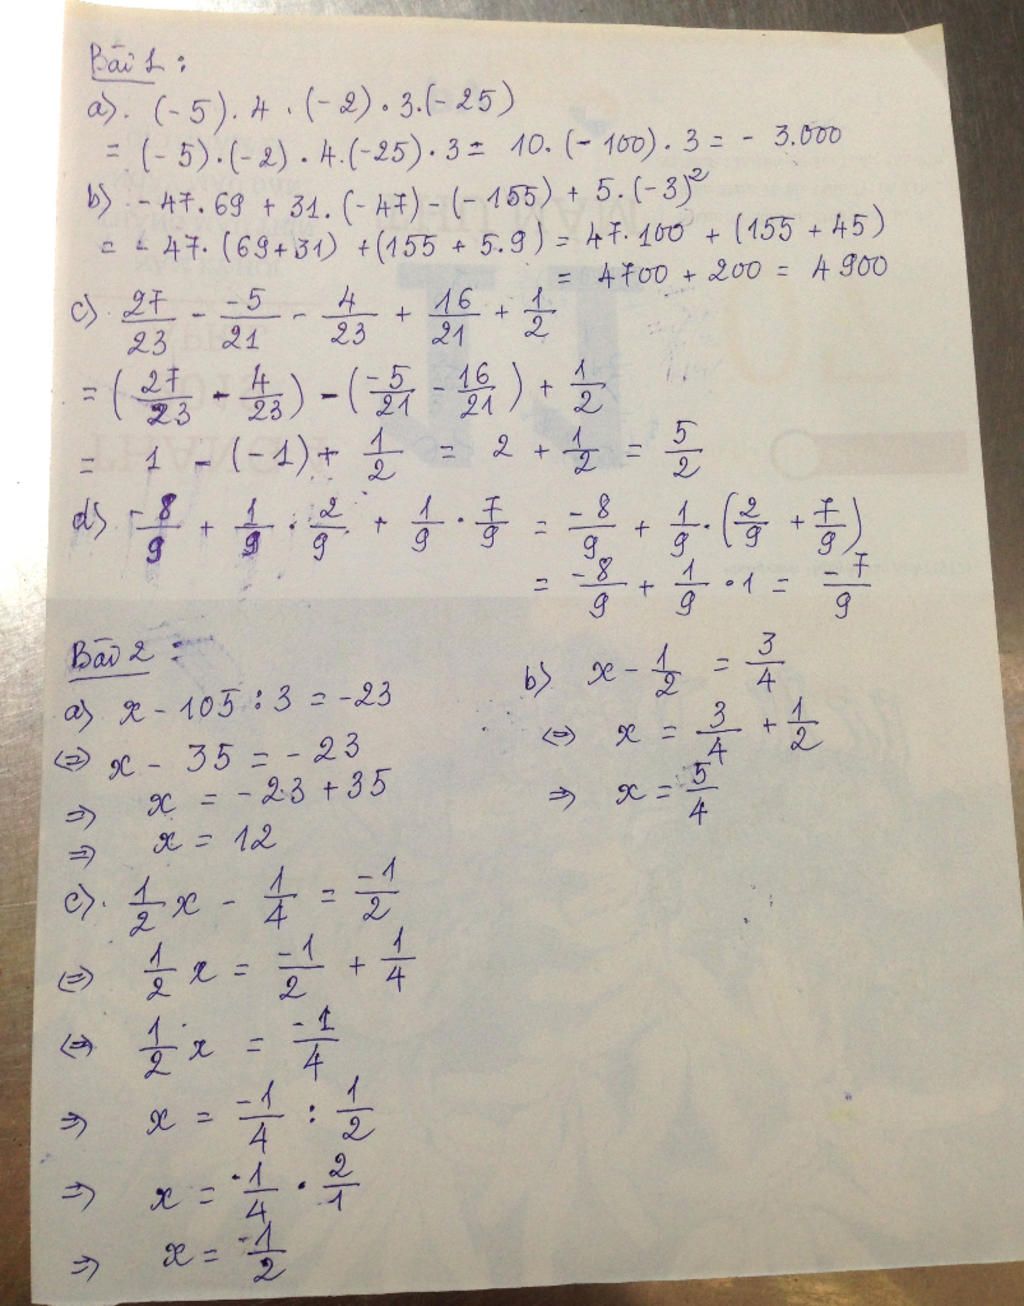 Bài 1 :
a). (-5) . 4 . (-2) . 3.(-25)
= (-5) . (-2) . 4.(-25) . 3 = 10. (-100) . 3 = - 3.000
b) - 47.69 + 31. (-47) - (-155) + 5.(-3)²
= - 47. (69+31) + (155 + 5.9) = 47.100 + (155 + 45)
= 4700 + 200 = 4900
c) 27/23 - -5/21 - 4/23 + 16/21 + 1/2
= (27/23 - 4/23) - (-5/21 - 16/21) + 1/2
= 1 - (-1) + 1/2 = 2 + 1/2 = 5/2
d) -8/9 + 1/9 . 2/9 + 1/9 . 7/9 = -8/9 + 1/9 . (2/9 + 7/9)
= -8/9 + 1/9 . 1 = -7/9
Bài 2 :
a) x - 105 : 3 = -23
⇔ x - 35 = - 23
⇒ x = - 23 + 35
⇒ x = 12
b) x - 1/2 = 3/4
⇔ x = 3/4 + 1/2
⇒ x = 5/4
c). 1/2 x - 1/4 = -1/2
⇔ 1/2 x = -1/2 + 1/4
⇔ 1/2 x = -1/4
⇒ x = -1/4 : 1/2
⇒ x = -1/4 . 2/1
⇒ x = -1/2